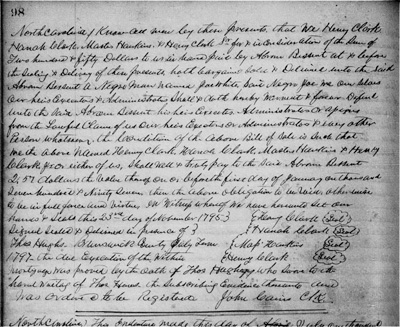 98
North Carolina / Know all men by these presents that We Henry Clark
Hannah Clark Master Hawkins & Henry Clark for & in Consideration of the Sum of
Two hundred & fifty Dollars to us in hand paid by Abram Bessent at & before
the Sealing & Delivery of these presents, hold bargained Sold & Delivered unto the said
Abram Bessent a Negro man named Jack which Said Negro Joe we our Selves
our heirs Executors & Administrators Shall & doth hereby Warrant & forever Defend
unto the Said Abram Bessent his heirs Executors Administrators or assigns
from the Lawful Claims of us Our heirs Executors or Administrators & every other
Person Whatsoever. The Condition of the above Bill of Sale is Such that
if the above Named Henry Clark Hannah Clark Master Hawkins & Henry
Clark or either of us, Shall well & truly pay to the Said Abram Bessent
dollars the Value thereof on or before the first day of January one thousand
Seven hundred & Ninety Seven then the above Obligation to be void otherwise
to be in full force and Virtue. In Witness whereof we have hereunto Set our
hands & Seals this 25th day of November 1795 } Henry Clark (Seal)
Signed Sealed & Delivered in presence of } Hannah Clark (Seal)
Thos Hughs. Brunswick County July Term } Hawkins (Seal)
1797. the due Execution of the Within } Henry Clark (Seal)
mortgage was proved by the Oath of Thos Hughs who Swore to the
hand Writing of Thos the Subscribing
Was Ordered to be Registered John Cains Clk.
North Carolina This Indenture made this day of